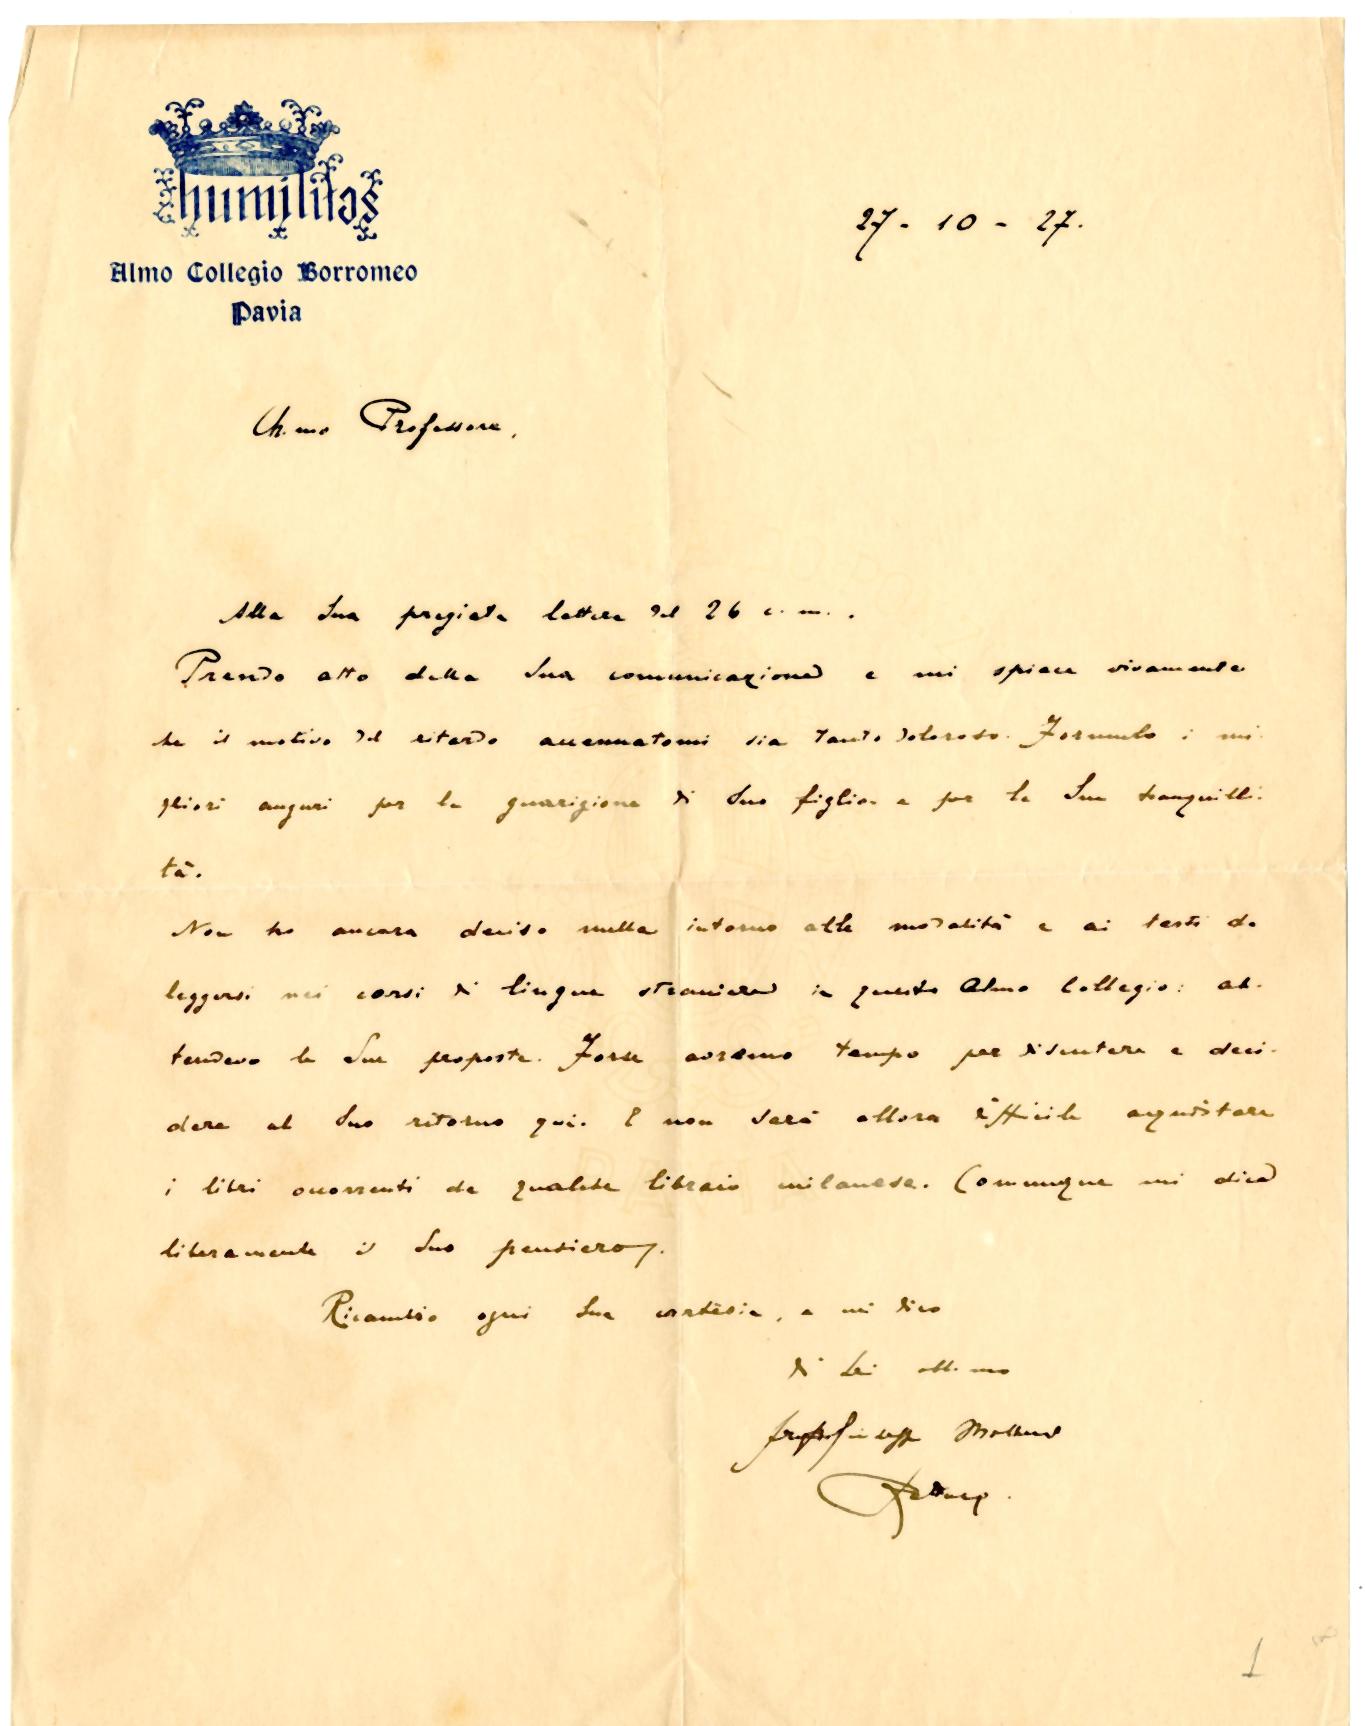 humilitas
Almo Collegio Borromeo
Pavia
27-10-27.
Ch.mo Professore,
Alla Sua pregiata lettera del 26 c.m..
Prendo atto della Sua comunicazione e mi spiace vivamente
che il motivo del ritardo accennatomi sia tanto doloroso. Formulo i mi-
gliori auguri per la guarigione di Suo figlio e per la Sua tranquilli-
tà.
Non ho ancora deciso nulla intorno alle modalità e ai testi da
leggersi nei corsi di lingue straniere in questo Almo Collegio: at-
tendevo le Sue proposte. Forse avremo tempo per discutere e deci-
dere al Suo ritorno qui. E non sarà allora difficile acquistare
i libri occorrenti da qualche libraio milanese. Comunque mi dica
liberamente il Suo pensiero.
Ricambio ogni Sua cortesia, e mi dico
di Lei obb.mo
Rettore.
1